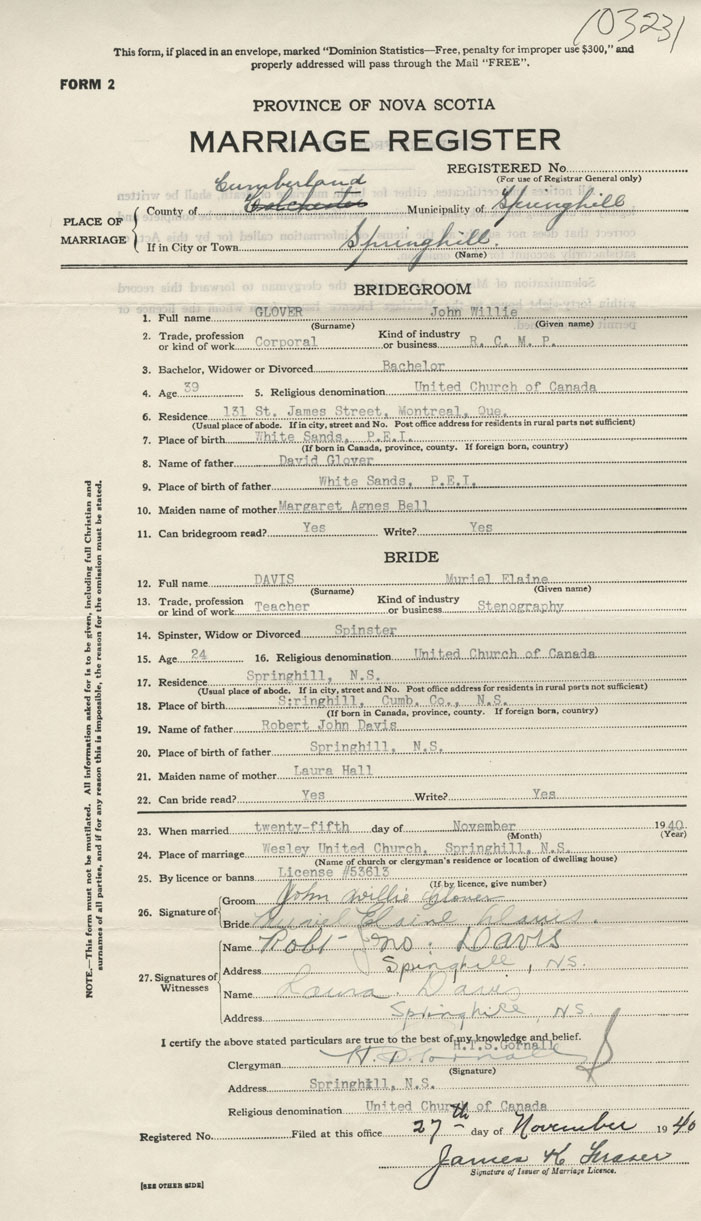 103231
This form, if placed in an envelope, marked "Dominion Statistics—Free, penalty for improper use $300," and
properly addressed will pass through the Mail "FREE".
FORM 2
PROVINCE OF NOVA SCOTIA
MARRIAGE REGISTER
REGISTERED No.
(For use of Registrar General only)
Cumberland
PLACE OF MARRIAGE County of Colchester Municipality of Springhill
If in City or Town Springhill.
(Name)
BRIDEGROOM
1. Full name GLOVER John Willie
(Surname) (Given name)
2. Trade, profession or kind of work Corporal Kind of industry or business R. C. M. P.
3. Bachelor, Widower or Divorced Bachelor
4. Age 39 5. Religious denomination United Church of Canada
6. Residence 131 St. James Street, Montreal, Que.
(Usual place of abode. If in city, street and No. Post office address for residents in rural parts not sufficient)
7. Place of birth White Sands, P.E.I.
(If born in Canada, province, county. If foreign born, country)
8. Name of father David Glover
9. Place of birth of father White Sands, P.E.I.
10. Maiden name of mother Margaret Agnes Bell
11. Can bridegroom read? Yes Write? Yes
BRIDE
12. Full name DAVIS Muriel Elaine
(Surname) (Given name)
13. Trade, profession or kind of work Teacher Kind of industry or business Stenography
14. Spinster, Widow or Divorced Spinster
15. Age 24 16. Religious denomination United Church of Canada
17. Residence Springhill, N.S.
(Usual place of abode. If in city, street and No. Post office address for residents in rural parts not sufficient)
18. Place of birth S:ringhill, Cumb. Co., N.S.
(If born in Canada, province, county. If foreign born, country)
19. Name of father Robert John Davis
20. Place of birth of father Springhill, N.S.
21. Maiden name of mother Laura Hall
22. Can bride read? Yes Write? Yes
23. When married twenty-fifth day of November 1940
(Month) (Year)
24. Place of marriage Wesley United Church, Springhill, N.S.
(Name of church or clergyman's residence or location of dwelling house)
25. By licence or banns License #53613
(If by licence, give number)
26. Signature of Groom John Willie Glover
Bride Muriel Elaine Davis.
27. Signatures of Witnesses Name Robt Jno. Davis
Address Springhill, N.S.
Name Laura Davis
Address Springhill, N.S.
I certify the above stated particulars are true to the best of my knowledge and belief.
H.T.S.Gornall
Clergyman
(Signature)
Address Springhill, N.S.
Religious denomination United Church of Canada
Registered No. Filed at this office 27th day of November 1940
James K Fraser
Signature of Issuer of Marriage Licence.
[SEE OTHER SIDE]
NOTE.—This form must not be mutilated. All information asked for is to be given, including full Christian and
surnames of all parties, and if for any reason this is impossible, the reason for the omission must be stated.